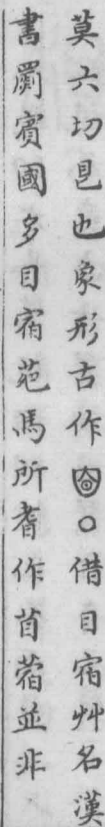 莫六切皃也象形古作〇借目宿艸名漢
書罽賓國多目宿苑馬所耆作苜蓿並非